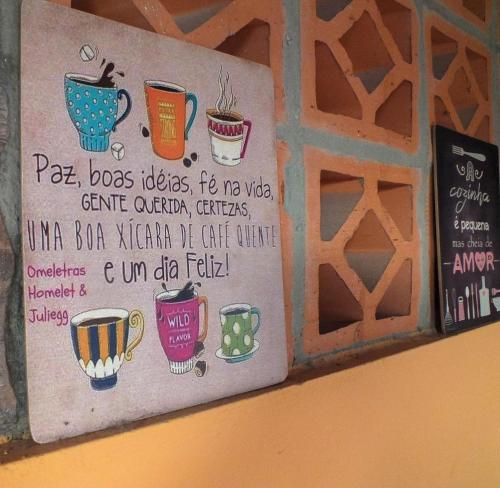 Paz, boas idéias, fé na vida,
GENTE QUERIDA, CERTEZAS,
UMA BOA XÍCARA DE CAFÉ QUENTE
e um dia Feliz!
Omeletras
Homelet &
Juliegg
WILD
FLAVOR
A
cozinha
é pequena
mas cheia de
AMOR